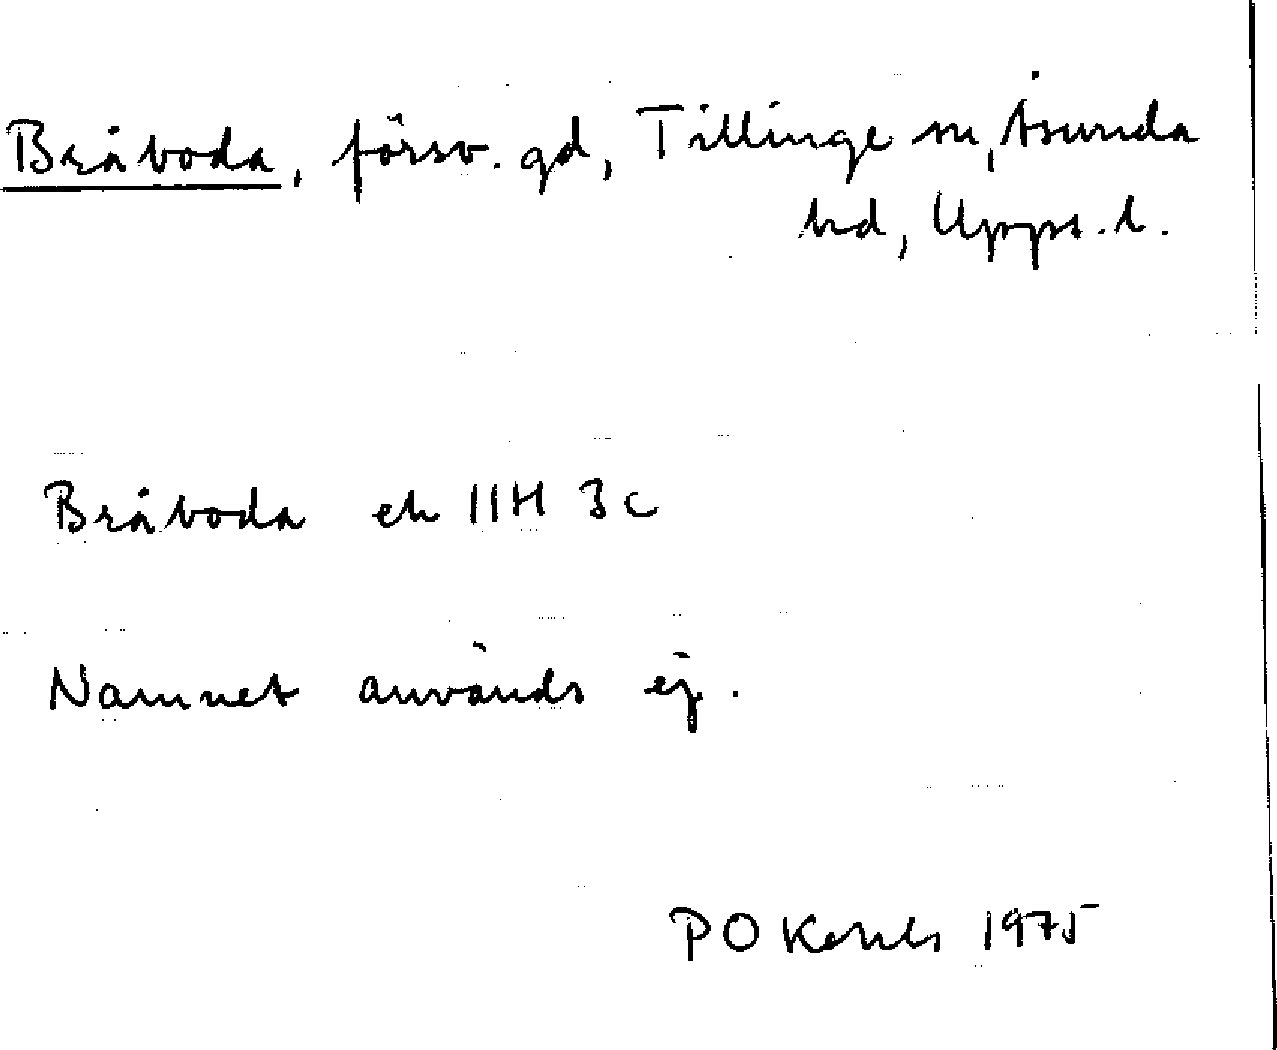 Bråboda, försv. gd, Tillinge sn, Åsunda
hd, Upps. l.
Bråboda ek 11H 3c
Namnet används ej.
P O 1975